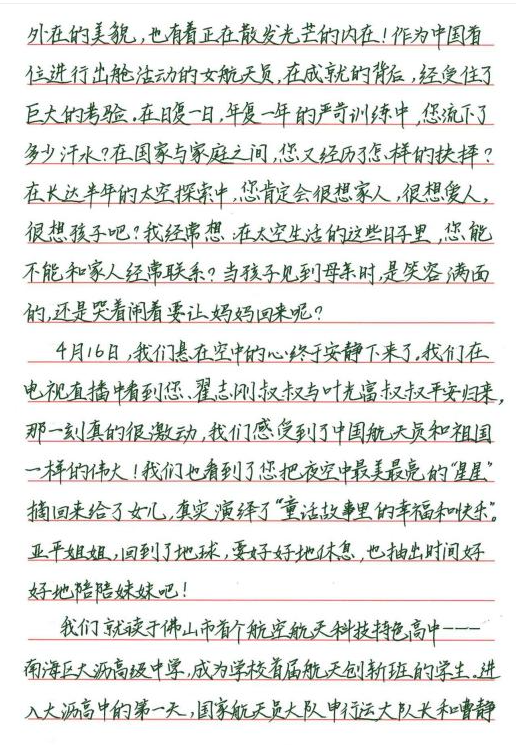 外在的美貌，也有着正在散发光芒的内在！作为中国首
位进行出舱活动的女航天员，在成就的背后，经受住了
巨大的考验。在日复一日，年复一年的严苛训练中，您流下了
多少汗水？在国家与家庭之间，您又经历了怎样的抉择？
在长达半年的太空探索中，您肯定会很想家人，很想爱人，
很想孩子吧？我经常想，在太空生活的这些日子里，您能
不能和家人经常联系？当孩子见到母亲时，是笑容满面
的，还是哭着闹着要让妈妈回来呢？
4月16日，我们悬在空中的心终于安静下来了。我们在
电视直播中看到您、翟志刚叔叔与叶光富叔叔平安归来，
那一刻真的很激动，我们感受到了中国航天员和祖国
一样的伟大！我们也看到了您把夜空中最美最亮的“星星”
摘回来给了女儿，真实演绎了“童话故事里的幸福和快乐”。
亚平姐姐，回到了地球，要好好地休息，也抽出时间好
好地陪陪妹妹吧！
我们就读于佛山市首个航空航天科技特色高中----
南海区大沥高级中学，成为学校首届航天创新班的学生。进
入大沥高中的第一天，国家航天员大队申行运大队长和曹静